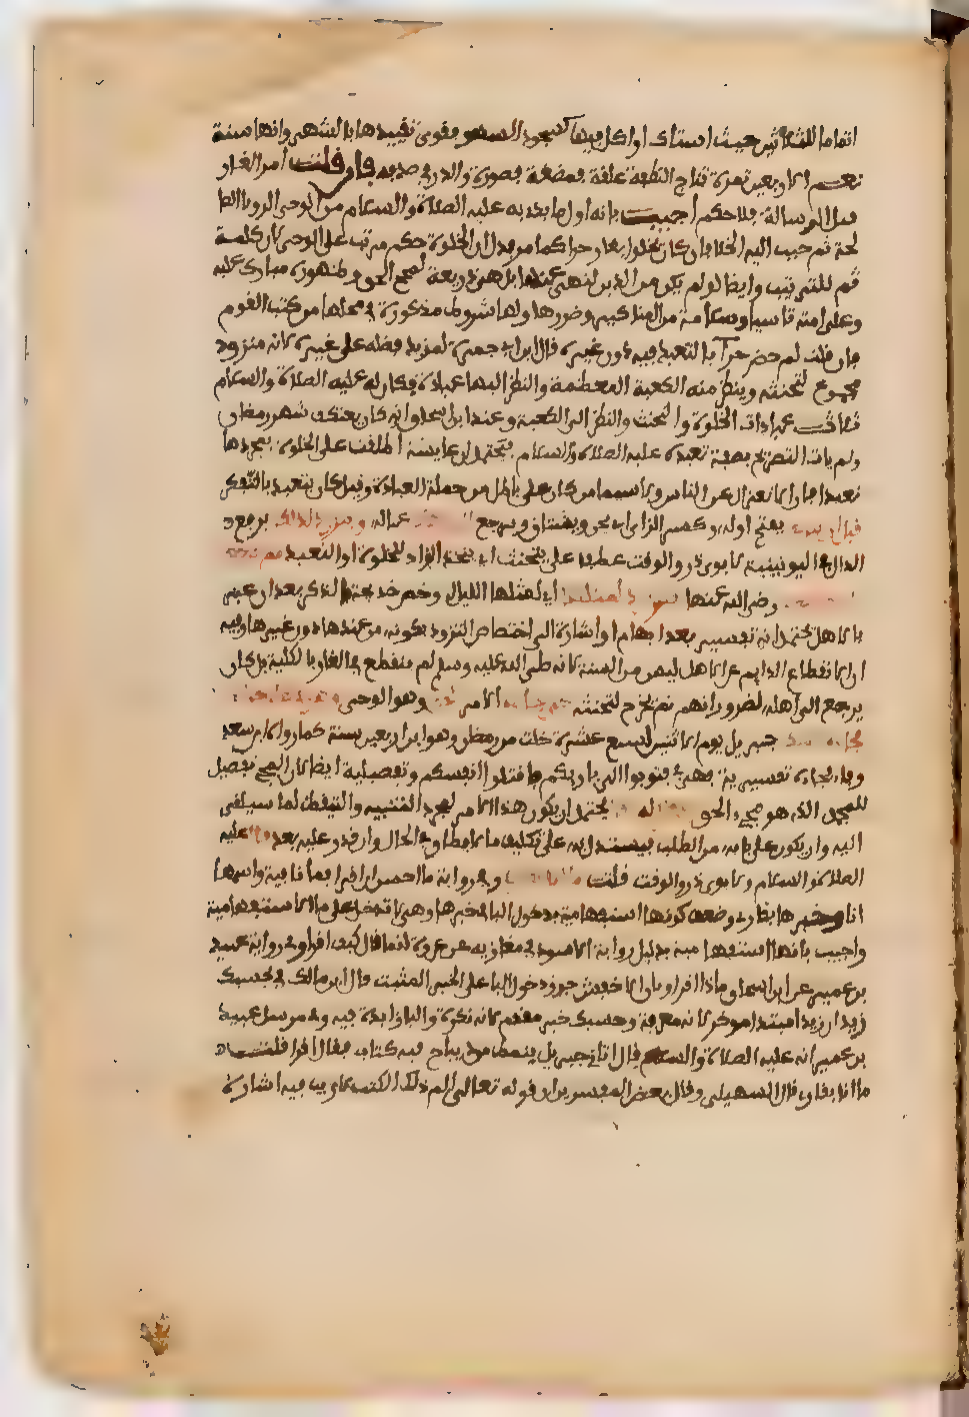 اتماما للثلاثين حيث استاك او اكل فيها كسجود السهو فقوى تقييدها بالشهر وانها سنة
نعم الاربعين ثمرة نتاج النطفة علقة فمضغة فصورة والدر في صدفه فان قلت امر الغار
قبل الرسالة فلا حكم اجيب بانه اول ما بدئ به عليه الصلاة والسلام من الوحي الرويا الصا
لحة ثم حبب اليه الخلا فكان يخلوا بغار حرا كما مر فدل ان الخلوة حكم مرتب على الوحي لان كلمة
ثم للترتيب وايضا لو لم يكن من الدين لنهى عنها بل هي ذريعة لمجيء الحق وظهوره مبارك عليه
وعلى امته تاسيا وسلامة من المناكير وضررها ولها شروط مذكورة في محلها من كتب القوم
فان قلت لم خص حرا بالتعبد فيه دون غيره قال ابن ابي جمرة لمزيد فضله على غيره لانه منزو
مجموع لتحنثه وينظر منه الكعبة المعظمة والنظر اليها عبادة فكان له عليه الصلاة والسلام
ثلاث عبادات الخلوة والتحنث والنظر الى الكعبة وعند ابن اسحاق انه كان يعتكف شهر رمضان
ولم يات التصريح بصفة تعبده عليه الصلاة والسلام فيحتمل ان عايشة اطلقت على الخلوة بمجردها
تعبدا فان الانعزال عن الناس ولا سيما من كان على باطل من جملة العبادة وقيل كان يتعبد بالتفكر
يفتح اوله وكسر الزاي اي يحن ويشتاق ويرجع عياله برفع
الدال في اليونينية لابوي ذر والوقت عطفا على يتحنث اي يتخذ الزاد للخلوة او التعبد
رضي الله عنها لمثلها اي لمثل الليالي وخص خديجة بالذكر بعد ان عبر
بالاهل يحتمل انه تفسير بعد ابهام او اشارة الى اختصاص التزود بكونه من عندها دون غيرها وفيه
ان الانقطاع الدايم عن الاهل ليس من السنة لانه صلى الله عليه وسلم لم ينقطع في الغار بالكلية بل كان
يرجع الى اهله لضروراتهم ثم يخرج لتحنثه الامر وهو الوحي
جبريل يوم الاثنين لسبع عشرة خلت من رمضان وهو ابن اربعين سنة كما رواه ابن سعد
وفاء فجاءه تفسيرية فهي في فتوبوا الى باريكم فاقتلوا انفسكم وتفصيلية ايضا لان المجي تفصيل
للمجمل الذي هو مجيء الحق يحتمل ان يكون هذا الامر لمجرد التنبيه والتيقظ لما سيلقى
اليه وان يكون على بابه من الطلب فيستدل به على تكليف ما لا يطاق في الحال وان قدر عليه بعد عليه
الصلاة والسلام ولابوي ذر والوقت قلت وفي رواية ما احسن ان اقرا فما نافية واسمها
انا وخبرها بقارئ وضعف كونها استفهامية بدخول البا في خبرها وهي لا تدخل على ما الاستفهامية
واجيب بانها استفهامية بدليل رواية ابي الاسود في مغازيه عن عروة انه قال كيف اقرا وفي رواية عبيد
بن عمير عن ابن اسحاق ماذا اقرا وبان الاخفش جوز دخول البا على الخبر المثبت قال ابن مالك في بحسبك
زيد ان زيدا مبتدا موخر لانه معرفة وحسبك خبر مقدم لانه نكرة والبا زايدة فيه وفي مرسل عبيد
بن عمير انه عليه الصلاة والسلام قال اتاني جبريل بنمط من ديباج فيه كتاب فقال اقرا قلت
ما انا بقارئ قال السهيلي وقال بعض المفسرين ان قوله تعالى الم ذلك الكتب لا ريب فيه اشارة